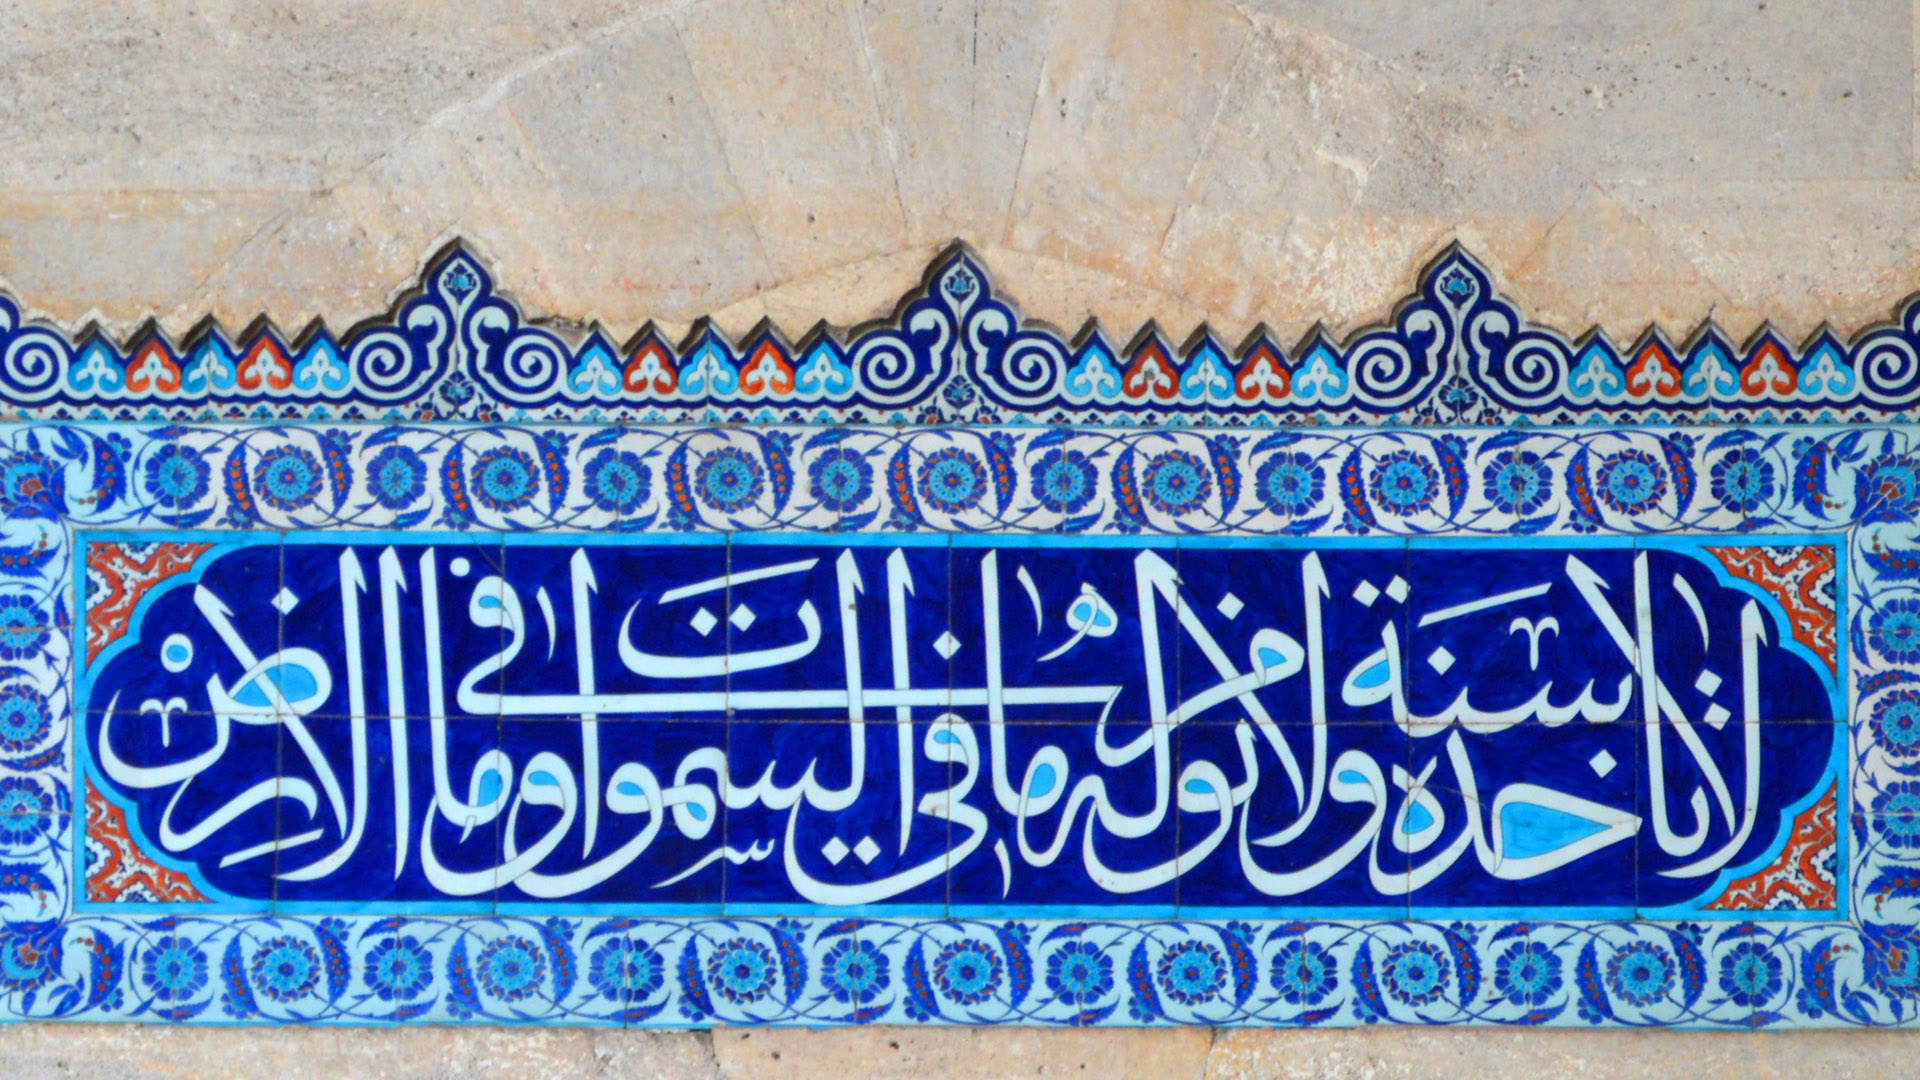 لا تأخذه سنة ولا نوم له ما في السموات وما في الأرض